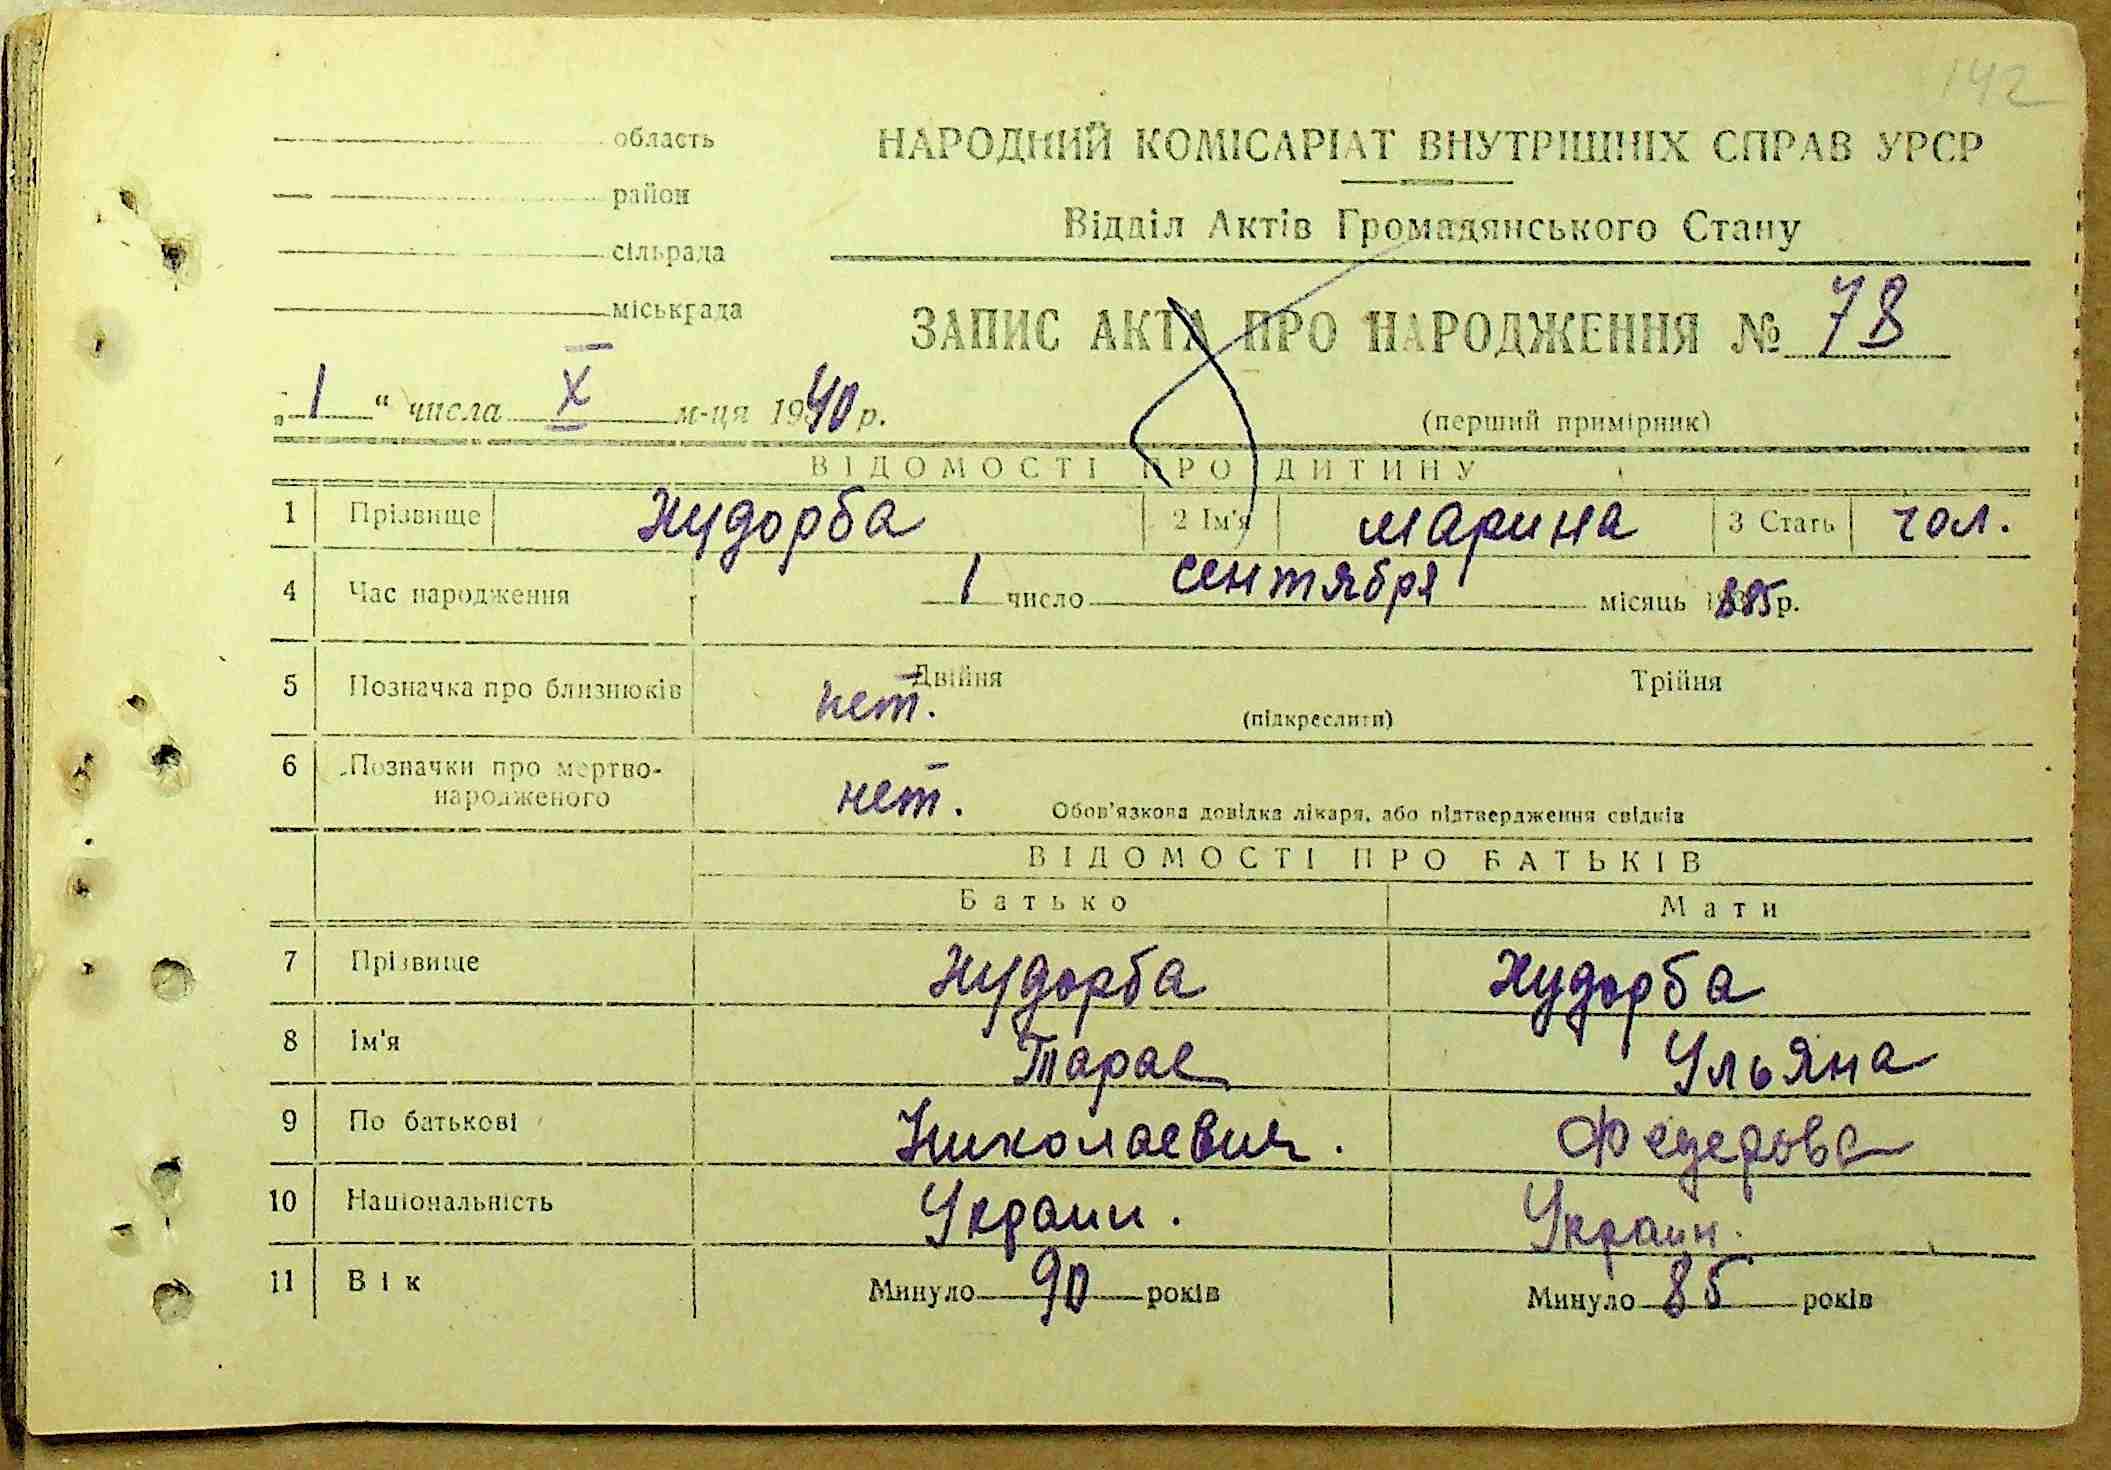 142
область
район
сільрада
міськрада
НАРОДНИЙ КОМІСАРІАТ ВНУТРІШНІХ СПРАВ УРСР
Відділ Актів Громадянського Стану
ЗАПИС АКТА ПРО НАРОДЖЕННЯ № 78
„1“ числа X м-ця 1940 р.
(перший примірник)
ВІДОМОСТІ ПРО ДИТИНУ
1 Прізвище Худорба 2 Ім'я Марина 3 Стать чол.
4 Час народження 1 число сентября місяць 1885 р.
5 Позначка про близнюків нет. Двійня Трійня
(підкреслити)
6 Позначки про мертво-
народженого нет. Обов'язкова довідка лікаря, або підтвердження свідків
ВІДОМОСТІ ПРО БАТЬКІВ
Батько Мати
7 Прізвище Худорба Худорба
8 Ім'я Тарас Ульяна
9 По батькові Николаевич. Федерова
10 Національність Украин. Украин.
11 Вік Минуло 90 років Минуло 85 років